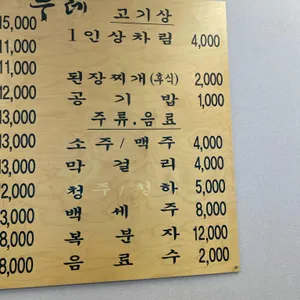 우레
고기상
15,000 1인상차림 4,000
11,000
11,000 된장찌개(후식) 2,000
12,000 공기밥 1,000
13,000 주류.음료
13,000 소주/맥주 4,000
13,000 막걸리 4,000
2,000 청하 5,000
3,000 백세주 8,000
8,000 복분자 12,000
8,000 음료수 2,000